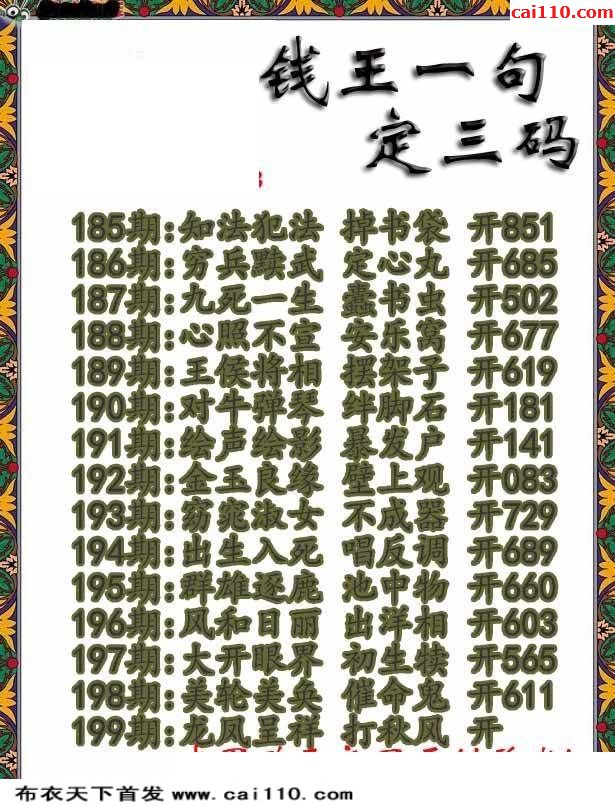 cai110.com
钱王一句
定三码
185期:知法犯法 掉书袋 开851
186期:穷兵黩武 定心丸 开685
187期:九死一生 蠹书虫 开502
188期:心照不宣 安乐窝 开677
189期:王侯将相 摆架子 开619
190期:对牛弹琴 绊脚石 开181
191期:绘声绘影 暴发户 开141
192期:金玉良缘 壁上观 开083
193期:窈窕淑女 不成器 开729
194期:出生入死 唱反调 开689
195期:群雄逐鹿 池中物 开660
196期:风和日丽 出洋相 开603
197期:大开眼界 初生犊 开565
198期:美轮美奂 催命鬼 开611
199期:龙凤呈祥 打秋风 开
布衣天下首发 www.cai110.com